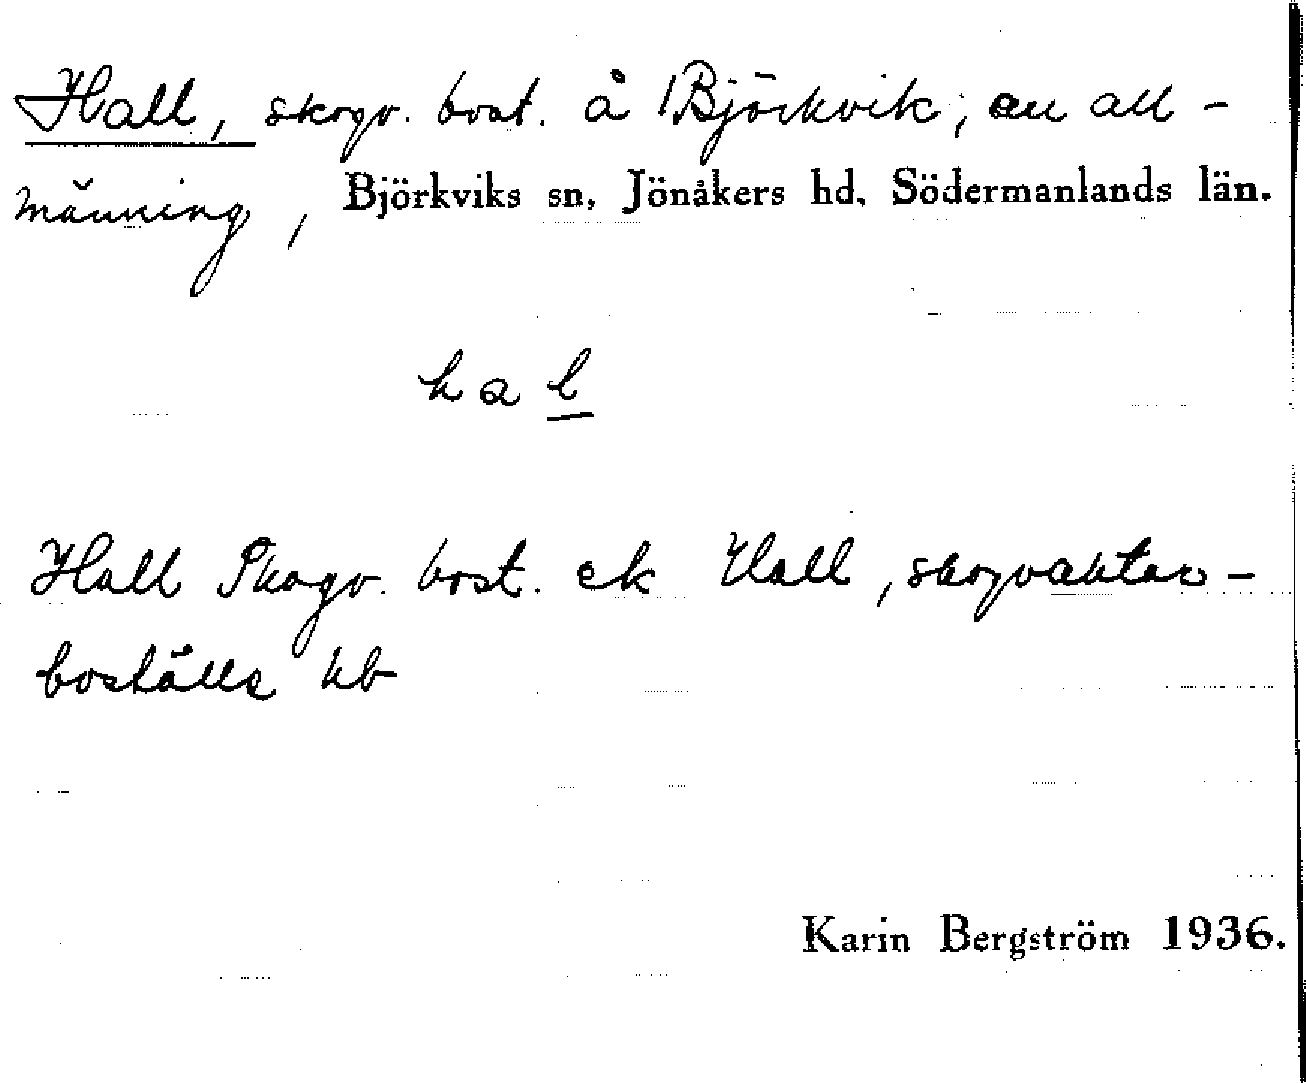 Hall, skogv. bost. å Björkvik, en all-
männing, Björkviks sn, Jönåkers hd, Södermanlands län.
hal
Hall Skogv. bost. ek Hall, skogvaktar-
boställe hb
Karin Bergström 1936.